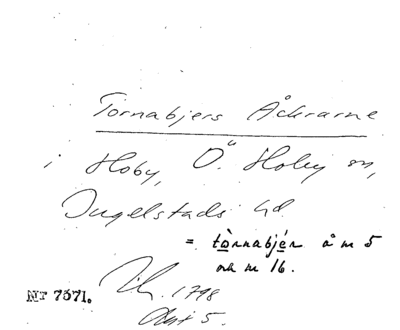 Tornabjers Åckrarne
i Hoby, Ö. Hoby sn,
Ingelstads hd
= tòrnabjér å m 5
och m 16.
NT 7371.
1798
Akt 5.